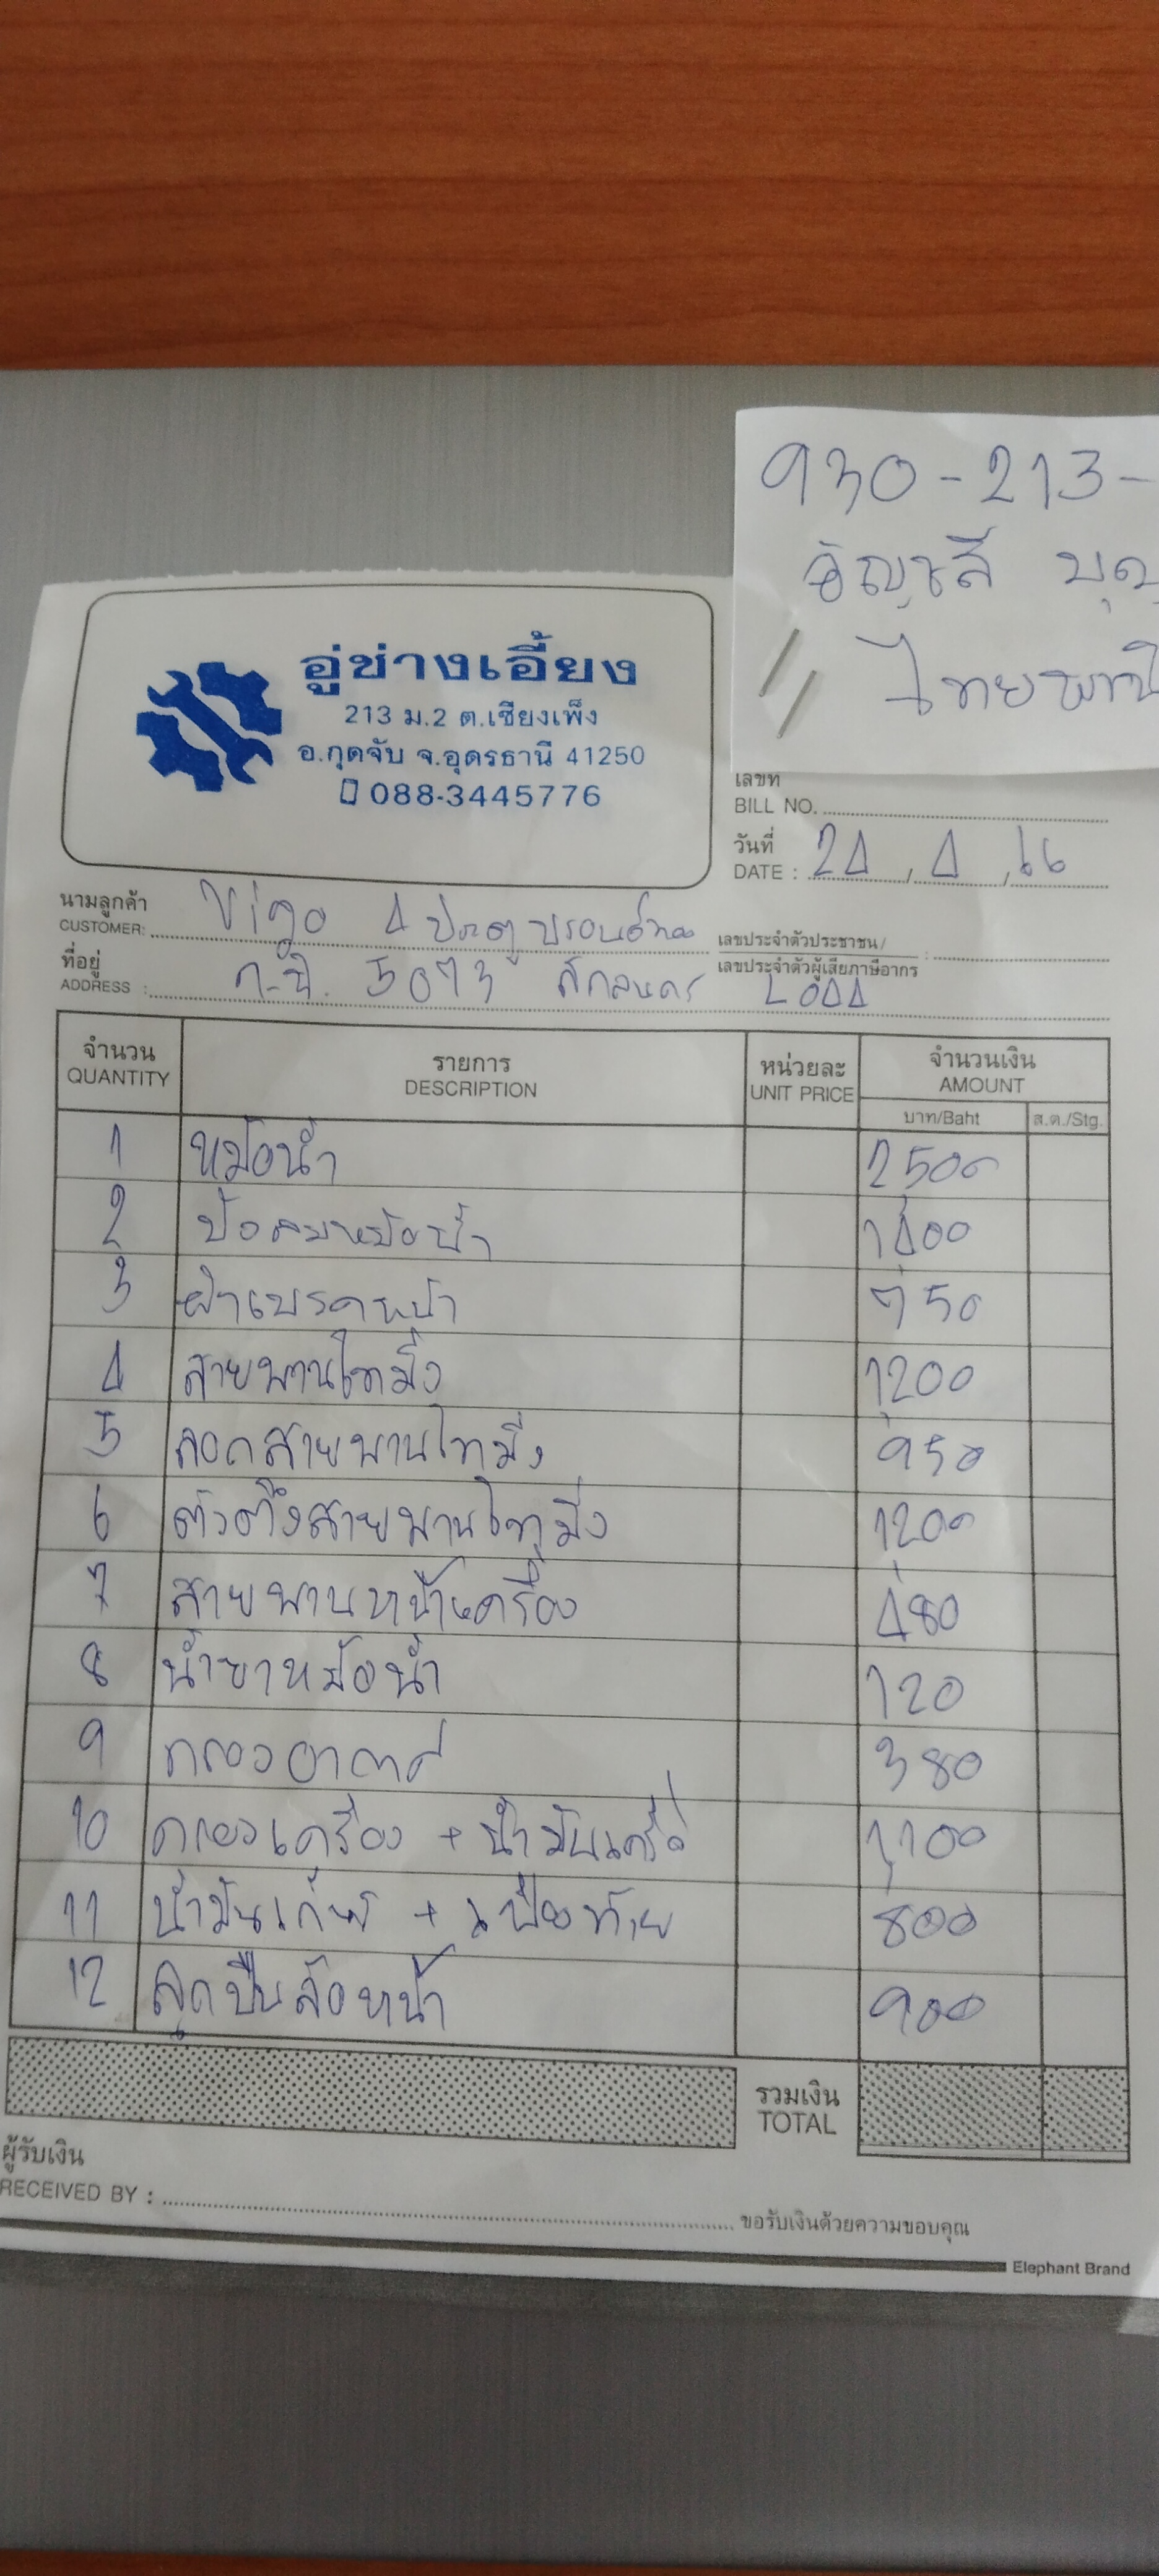 930-213-
อัญชลี บุญ
ไทยพาณิ
อู่ช่างเอี้ยง
213 ม.2 ต.เชียงเพ็ง
อ.กุดจับ จ.อุดรธานี 41250
088-3445776
เลขที่
BILL NO.
วันที่
DATE : 24, 4, 66
นามลูกค้า
CUSTOMER: Vigo 4 ประตู บรอนซ์ทอง
เลขประจำตัวประชาชน/
เลขประจำตัวผู้เสียภาษีอากร :
ที่อยู่
ADDRESS : 5073 สกลนคร
จำนวน QUANTITY รายการ DESCRIPTION หน่วยละ UNIT PRICE จำนวนเงิน AMOUNT
บาท/Baht ส.ต./Stg.
1 หม้อน้ำ 2,500
2 หม้อน้ำ 1,400
3 ผ้าเบรคหน้า 750
4 สายพานไทมิ่ง 1,200
5 ลอกสายพานไทมิ่ง 950
6 ตัวตั้งสายพานไทมิ่ง 1,200
7 สายพานหน้าเครื่อง 480
8 น้ำยาหม้อน้ำ 120
9 กรองอากาศ 380
10 กรองเครื่อง + น้ำมันเครื่อง 1,100
11 น้ำมันเกียร์ + เฟืองท้าย 800
12 ลูกปืนล้อหน้า 900
รวมเงิน
TOTAL
ผู้รับเงิน
RECEIVED BY :
ขอรับเงินด้วยความขอบคุณ
Elephant Brand